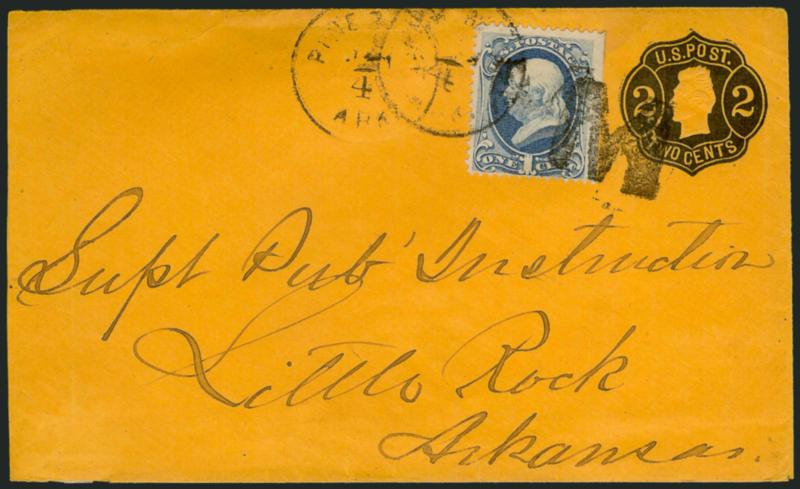 PINE
4
ARK
U.S. POSTAGE
ONE 1 CENT
U.S. POST.
2 2
TWO CENTS
Supt Pub' Instruction
Little Rock
Arkansas.